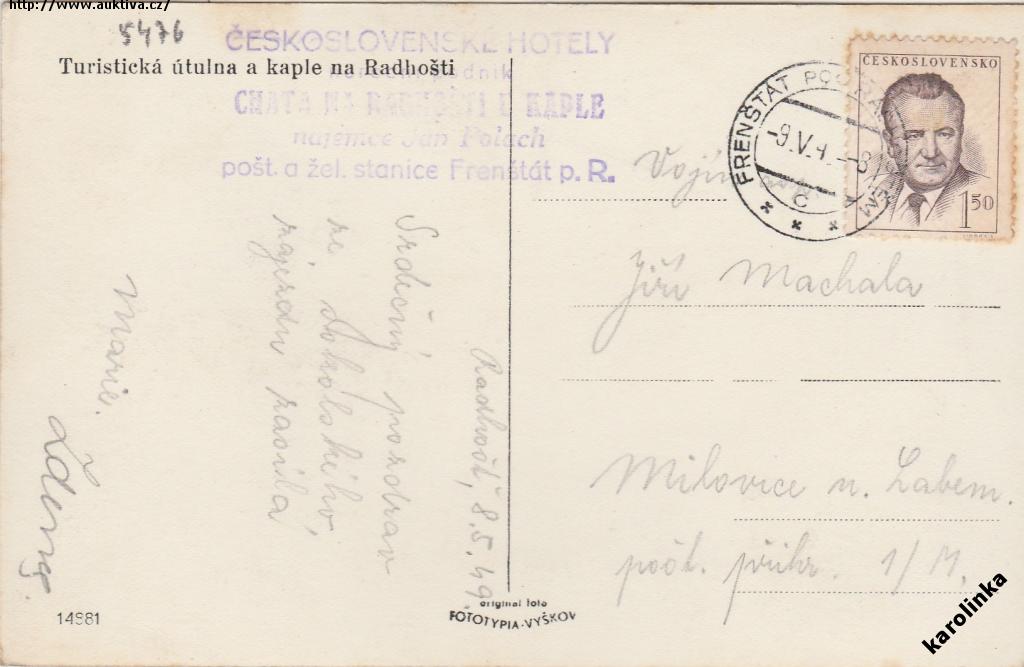 http://www.auktiva.cz/
5476
Turistická útulna a kaple na Radhošti
ČESKOSLOVENSKÉ HOTELY
národní podnik
CHATA NA RADHOŠTI U KAPLE
nájemce Jan Polach
pošt. a žel. stanice Frenštát p. R.
Radhošť, 8.5.49.
Srdečný pozdrav
ze Sokolského
zájezdu zasílá
Marie.
Zdena.
14981
original foto
FOTOTYPIA-VYŠKOV
ČESKOSLOVENSKO
1 50
FRENŠTÁT POD RADHOŠTĚM
-9.V.4
-8
c
Vojín
Jiří Machala
Milovice n. Labem.
pošt. přihr. 1/M.
karolinka